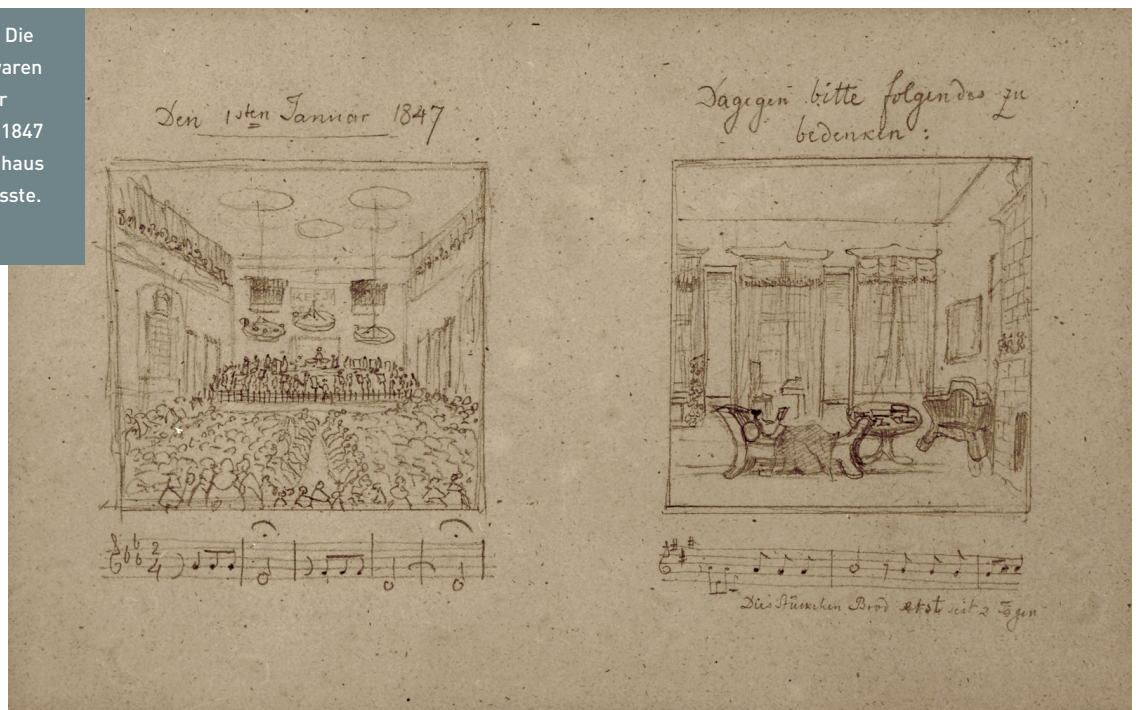 Die
waren
r
1847
haus
sste.
Den 1sten Januar 1847
Dagegen bitte folgendes zu
bedenken :
2
4
Brod erst seit 2 Tagen